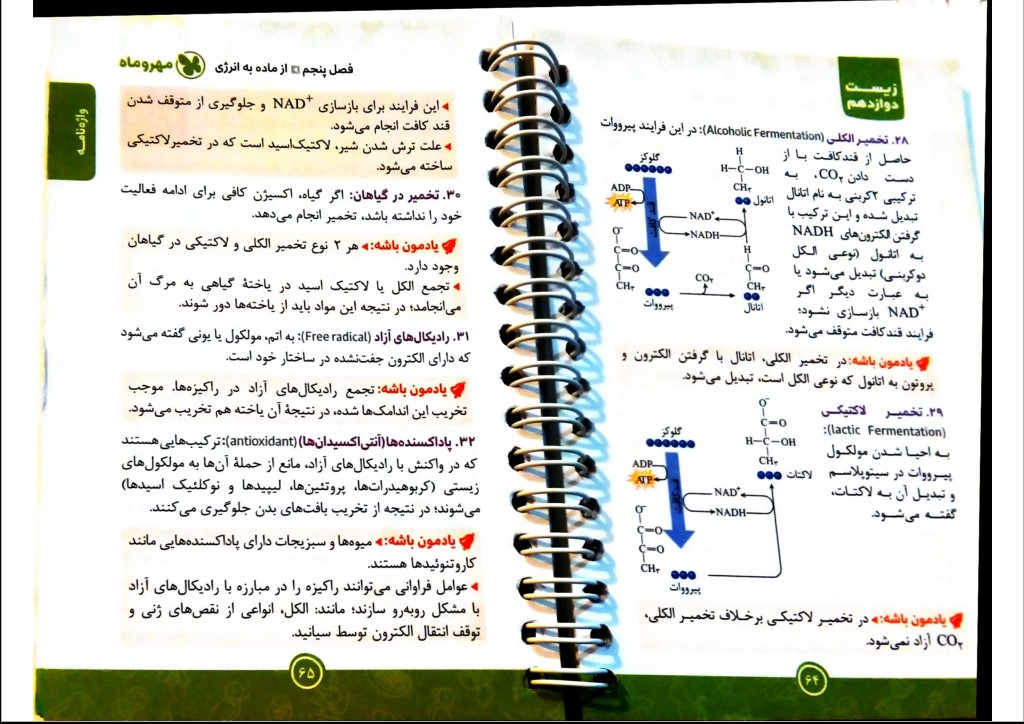 زیست
دوازدهم
۲۸. تخمیر الکلی (Alcoholic Fermentation): در این فرایند پیرووات
حاصل از قندکافت با از
دست دادن CO۲، به
ترکیبی ۲کربنی به نام اتانال
تبدیل شده و این ترکیب با
گرفتن الکترون‌های NADH
به اتانول (نوعی الکل
دوکربنی) تبدیل می‌شود یا
به عبارت دیگر اگر
NAD+ بازسازی نشود؛
فرایند قندکافت متوقف می‌شود.
گلوکز
ADP
ATP
قندکافت
NAD+
NADH
O-
C=O
C=O
CH۳
پیرووات
CO۲
H
H-C-OH
CH۳
اتانول
H
C=O
CH۳
اتانال
یادمون باشه: در تخمیر الکلی، اتانال با گرفتن الکترون و
پروتون به اتانول که نوعی الکل است، تبدیل می‌شود.
۲۹. تخمیر لاکتیکی
(lactic Fermentation):
به احیا شدن مولکول
پیرووات در سیتوپلاسم
و تبدیل آن به لاکتات،
گفته می‌شود.
گلوکز
ADP
ATP
قندکافت
NAD+
NADH
O-
C=O
C=O
CH۳
پیرووات
O-
C=O
H-C-OH
CH۳
لاکتات
یادمون باشه: در تخمیر لاکتیکی برخلاف تخمیر الکلی،
CO۲ آزاد نمی‌شود.
۶۴
فصل پنجم از ماده به انرژی
مهروماه
واژه‌نامه
این فرایند برای بازسازی NAD+ و جلوگیری از متوقف شدن
قند کافت انجام می‌شود.
علت ترش شدن شیر، لاکتیک‌اسید است که در تخمیرلاکتیکی
ساخته می‌شود.
۳۰. تخمیر در گیاهان: اگر گیاه، اکسیژن کافی برای ادامه فعالیت
خود را نداشته باشد، تخمیر انجام می‌دهد.
یادمون باشه: هر ۲ نوع تخمیر الکلی و لاکتیکی در گیاهان
وجود دارد.
تجمع الکل یا لاکتیک اسید در یاختهٔ گیاهی به مرگ آن
می‌انجامد؛ در نتیجه این مواد باید از یاخته‌ها دور شوند.
۳۱. رادیکال‌های آزاد (Free radical): به اتم، مولکول یا یونی گفته می‌شود
که دارای الکترون جفت‌نشده در ساختار خود است.
یادمون باشه: تجمع رادیکال‌های آزاد در راکیزه‌ها، موجب
تخریب این اندامک‌ها شده، در نتیجهٔ آن یاخته هم تخریب می‌شود.
۳۲. پاداکسنده‌ها (آنتی‌اکسیدان‌ها) (antioxidant): ترکیب‌هایی هستند
که در واکنش با رادیکال‌های آزاد، مانع از حملهٔ آن‌ها به مولکول‌های
زیستی (کربوهیدرات‌ها، پروتئین‌ها، لیپیدها و نوکلئیک اسیدها)
می‌شوند؛ در نتیجه از تخریب بافت‌های بدن جلوگیری می‌کنند.
یادمون باشه: میوه‌ها و سبزیجات دارای پاداکسنده‌هایی مانند
کاروتنوئیدها هستند.
عوامل فراوانی می‌توانند راکیزه را در مبارزه با رادیکال‌های آزاد
با مشکل روبه‌رو سازند؛ مانند: الکل، انواعی از نقص‌های ژنی و
توقف انتقال الکترون توسط سیانید.
۶۵